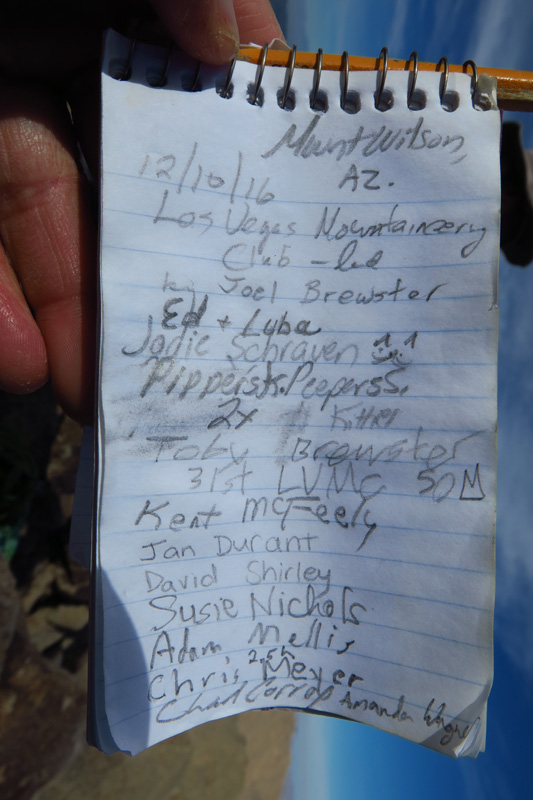 Mount Wilson,
12/10/16 AZ.
Las Vegas Mountaineery
Club - led
by Joel Brewster
Ed + Lyba
Jodie Schraven
Pippers K. Peepers S.
2x
Toby Brewster
31st LVMC 50M
Kent McFeely
Jan Durant
David Shirley
Susie Nichols
Adam Mellis
Chris Meyer
Chad Amanda